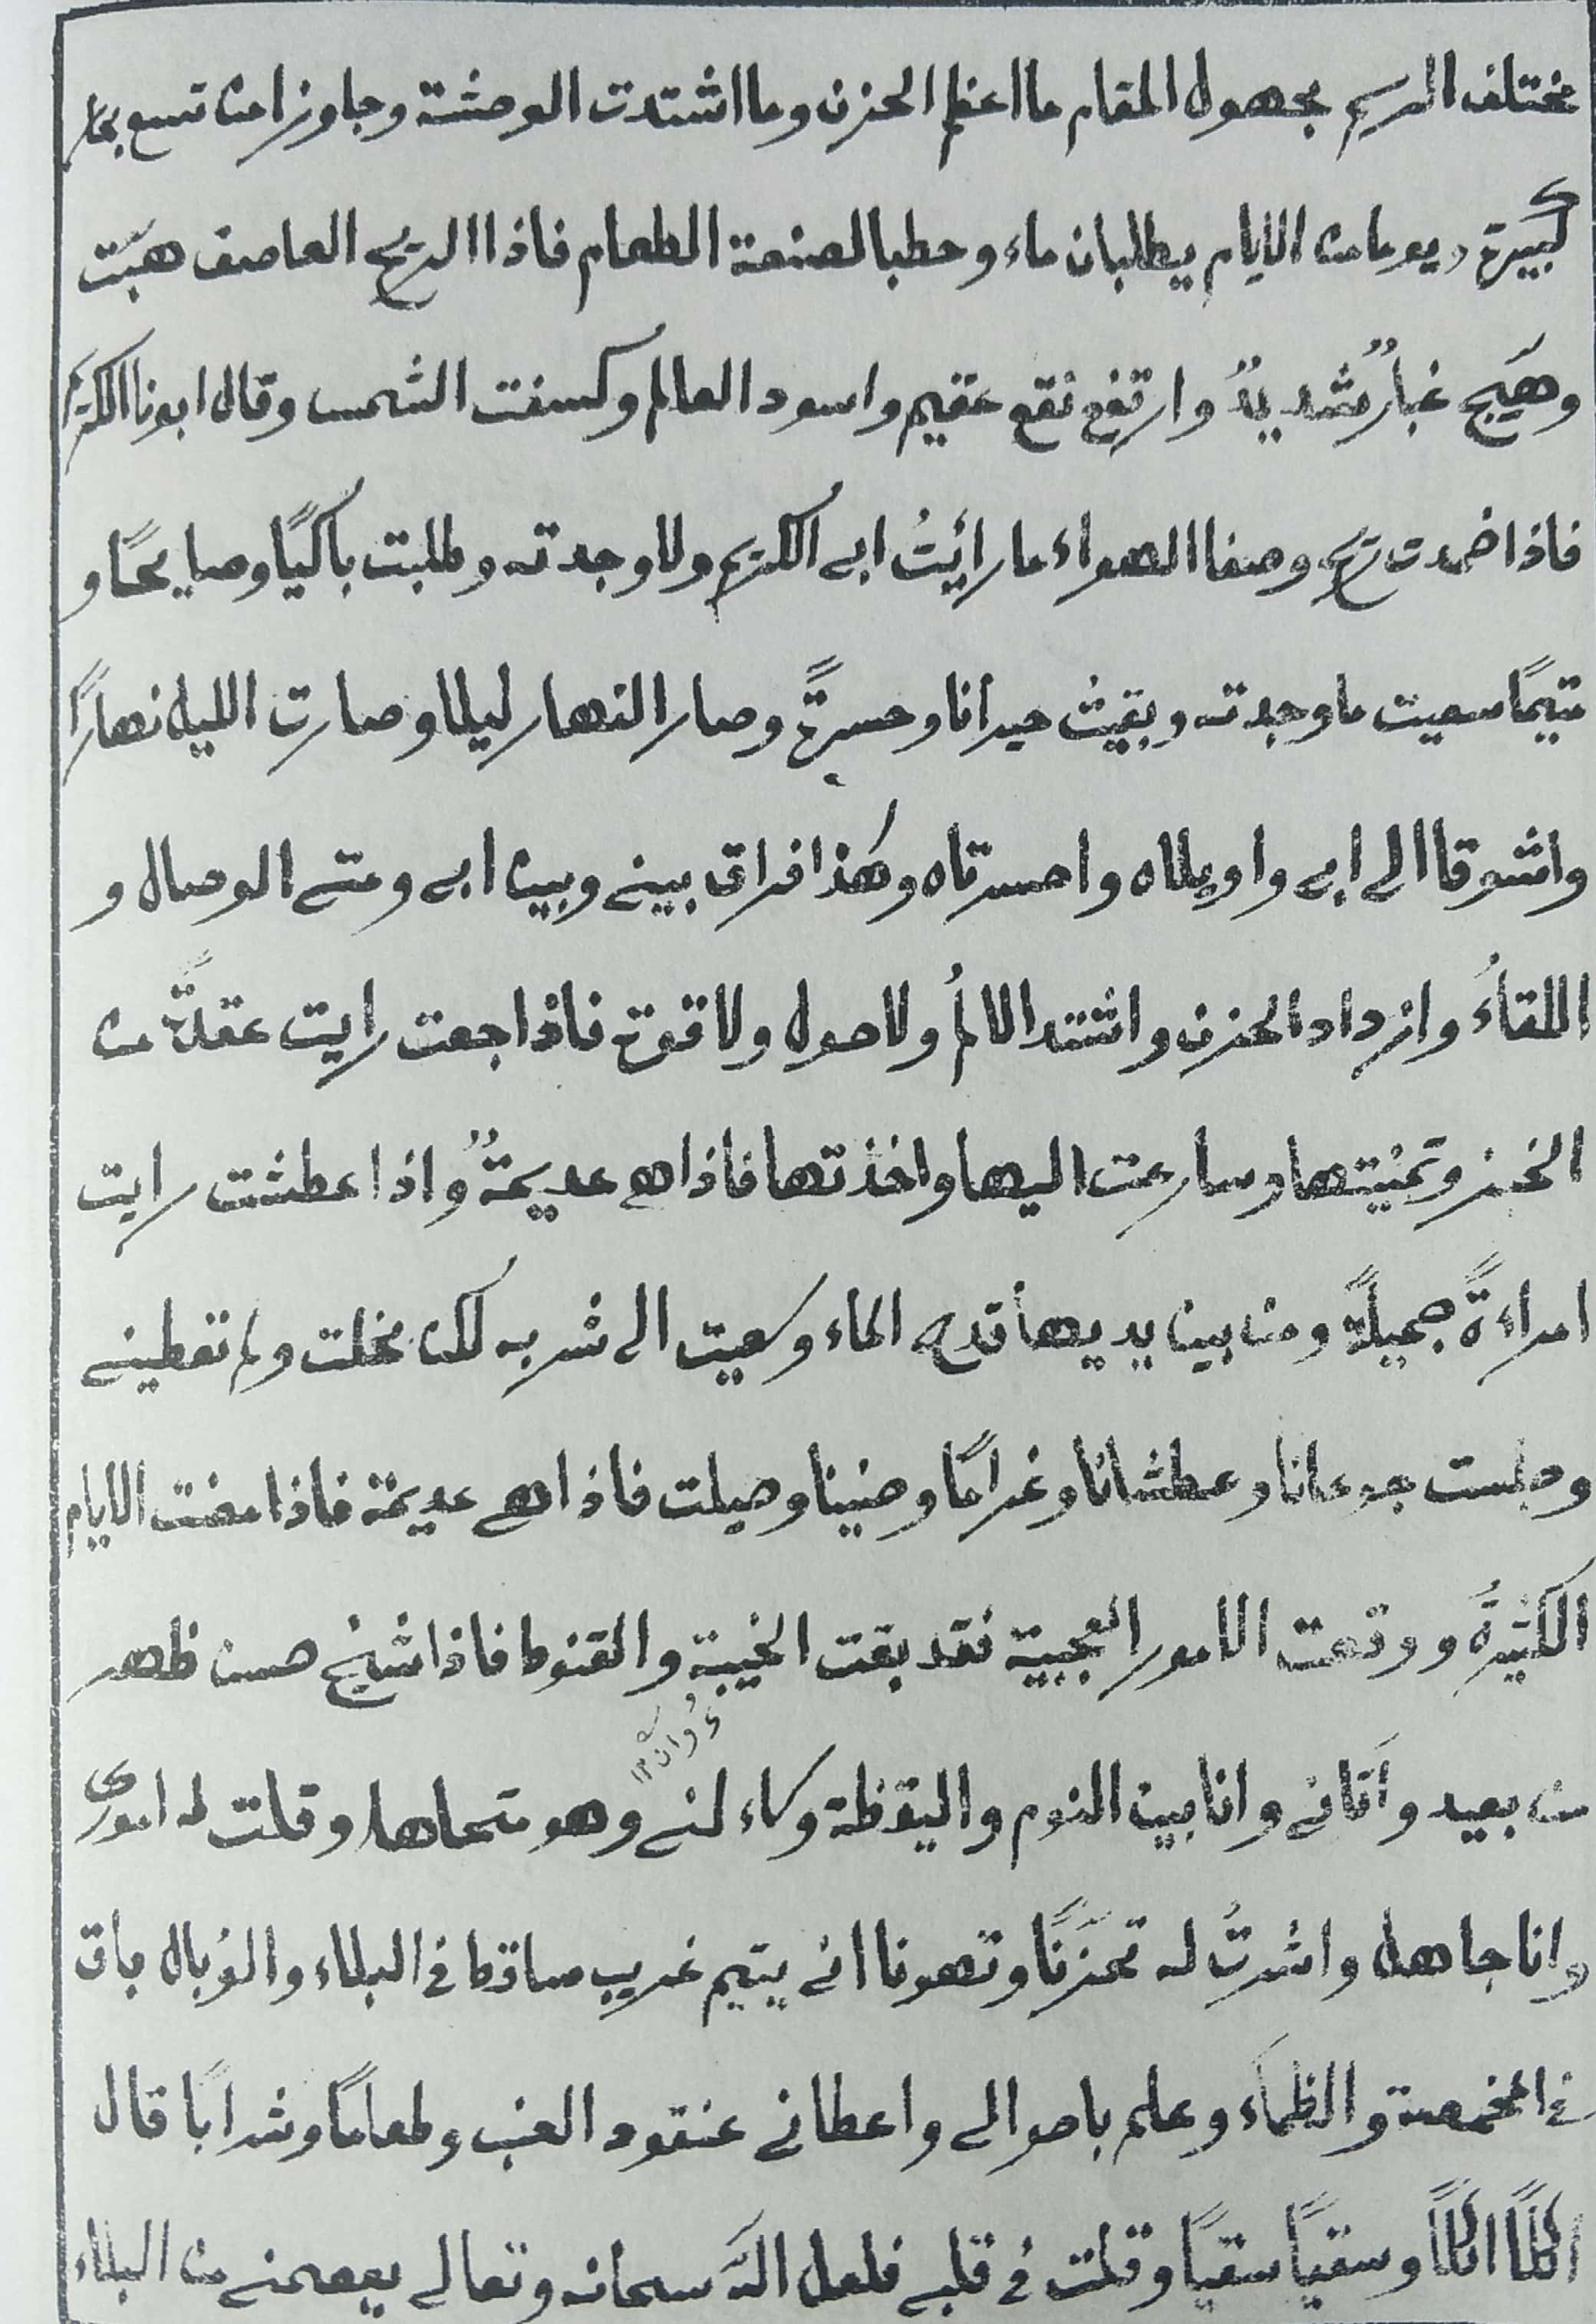 مختلف الريح مجهول المقام ما اعظم الحزن وما اشتدت الوحشة وجاوزا من تسع بحار
كبيرة ويوما من الايام يطلبان ماء وحطبا لصنعة الطعام فاذا الريح العاصف هبّت
وهَيّج غبارٌ شديدٌ وارتفع نقع عقيم واسود العالم وكسفت الشمس وقال ابونا الكريم
فاذا خمدت ريح وصفا الهواء ما رأيتُ ابي الكريم ولا وجدته وطلبت باكيًا وصايحًا و
يتيمًا سعيت ما وجدته وبقيتُ حيرانا وحسرةً وصار النهار ليلا وصارت الليل نهارًا
واشوقا الى ابي واويلاه واحسرتاه وهكذا فراق بيني وبين ابي ومتى الوصال و
اللقاءُ وازداد الحزن واشتد الالمُ ولا حول ولا قوة فاذا جعت رايت عقدةً من
الخبز وتمنيتها وسارعت اليها واخذتها فاذا هي عديمةٌ واذا عطشت رايت
امراءةً جميلةً ومن بين يديها قدح الماء وسعيت الى شربه لكن بخلت ولم تعطيني
وجلست جوعانا وعطشانا وغرامًا وضنينا وصيلت فاذا هي عديمة فاذا مضت الايام
الكثيرةُ ووقعت الامور العجيبة فقد بقت الخيبة والقنوط فاذا شيخ حسن ظهر
من بعيد وأتاني وانا بين النوم واليقظة وساءلني وهو وقلت له امورى
وانا جاهل واشرتُ له تحزنًا وتهونا اني يتيم غريب ساقط في البلاء والوبال باق
في المخمصة والظماء وعلم باحوالي واعطاني عنقود العنب وطعامًا وشرابًا قال
اكلًا اكلًا وسقيًا سقيًا وقلت في قلبي فلعل الله سبحانه وتعالى يعصمني من البلاء